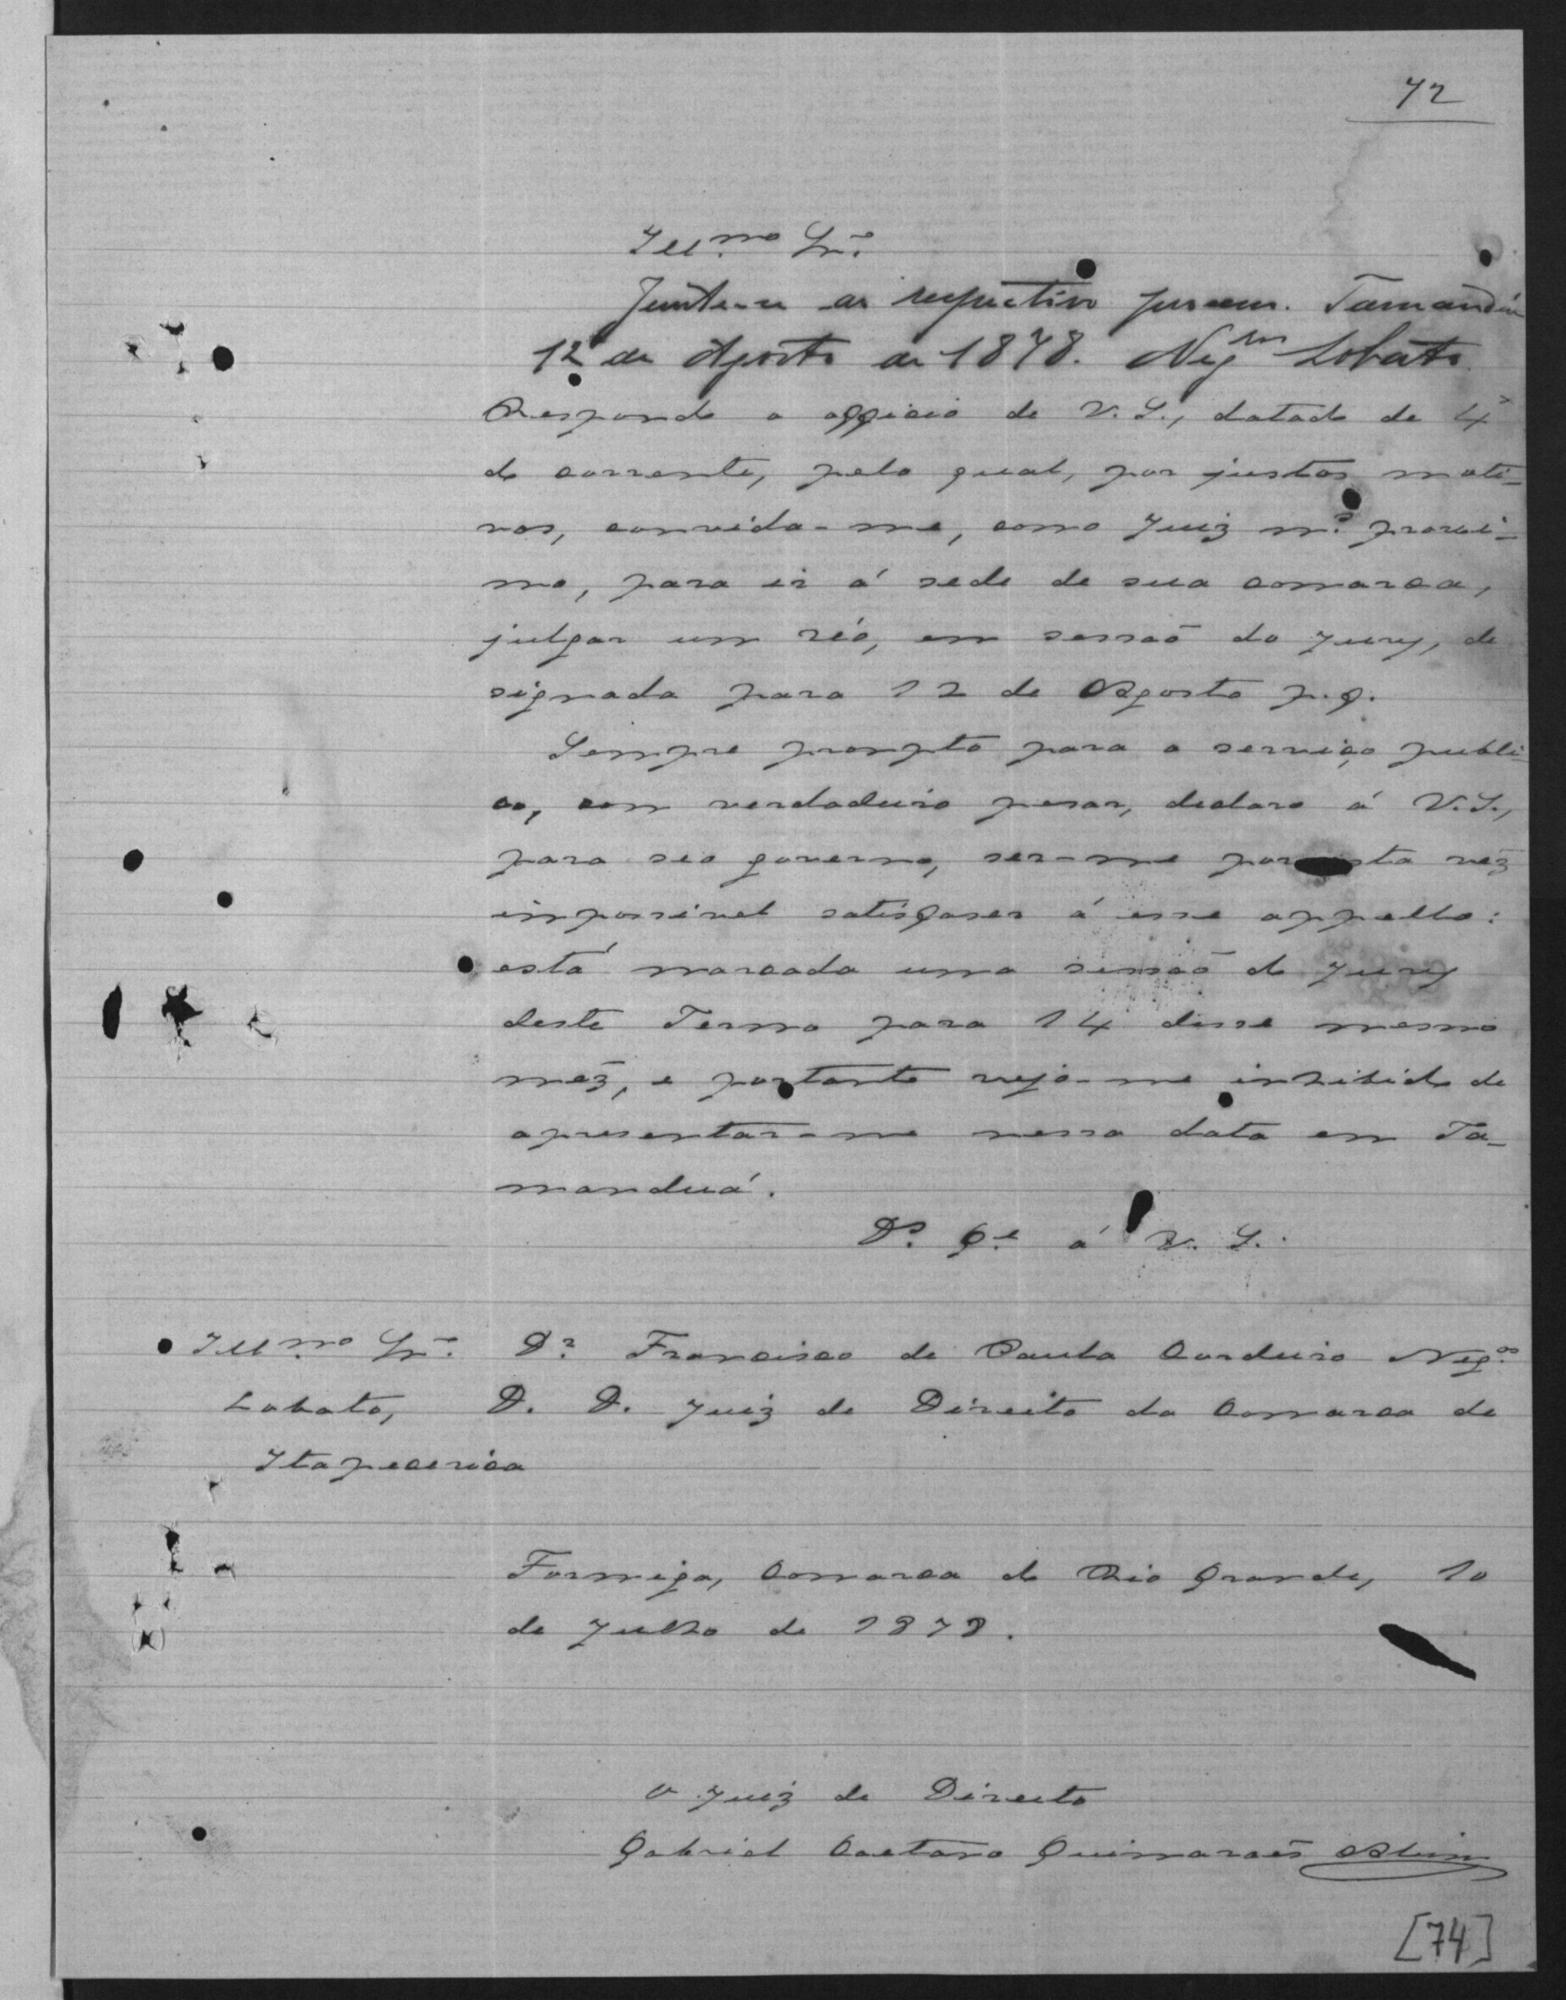 72
Ill.mo Sr.
Junte-se ao respectivo processo. Tamanduá
12 de Agosto de 1878. Neg.ros Lobato
Respondo o officio de V. S., datado de 4
do corrente, pelo qual, por justos moti-
vos, convida-me, como Juiz m.s proxi-
mo, para ir á sede de sua comarca,
julgar um réo, em sessaõ do jury, de
signada para 12 de Agosto p. f.
Sempre prompto para o serviço publi-
co, com verdadeiro pesar, declaro á V. S.,
para seo governo, ser-me por esta vez
impossivel satisfaser á esse appello:
está marcada uma sessaõ do jury
deste Termo para 14 desse mesmo
mêz, e portanto vejo-me inhibido de
apresentar-me nessa data em Ta-
manduá.
D.s G.e á V. S.
Ill.mo Sr. Dr. Francisco de Paula Cordeiro Neg.os
Lobato, D. D. Juiz de Direito da Comarca de
Itapecerica
Formiga, Comarca do Rio Grande, 10
de Julho de 1878.
O Juiz de Direito
Gabriel Caetano Guimaraẽs
[74]